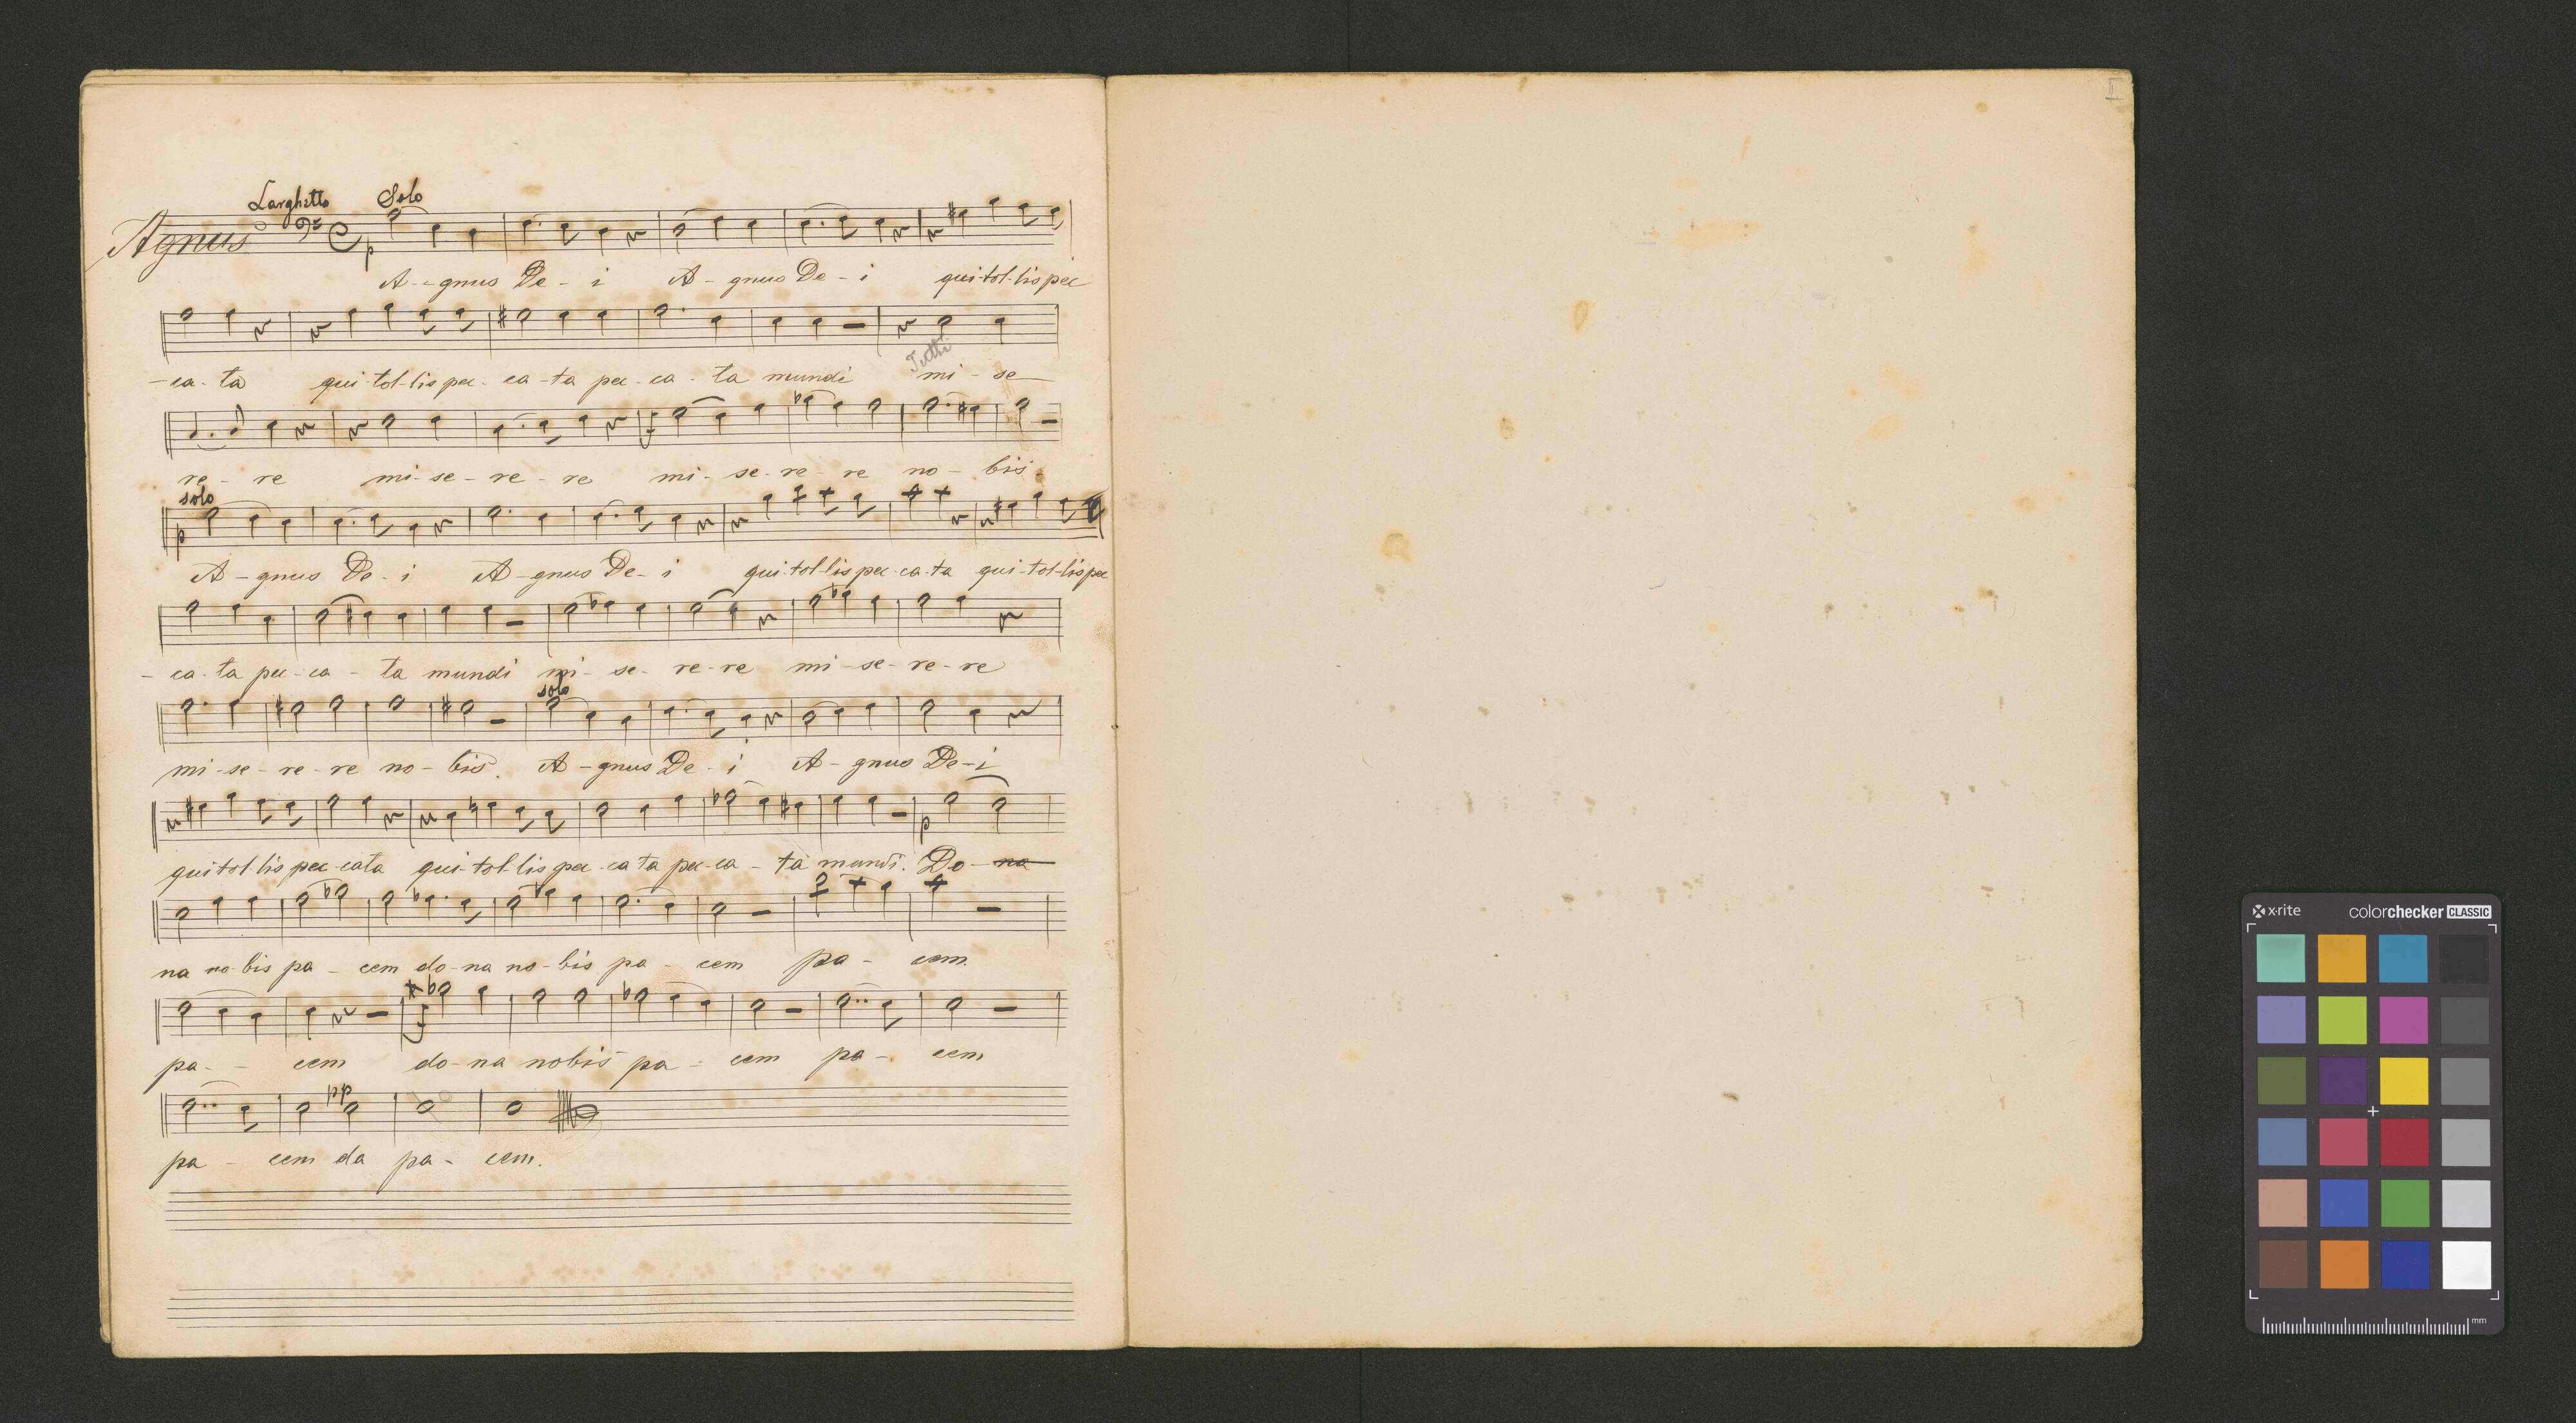 Larghetto Solo
Agnus C p
A - gnus De - i A - gnus De - i qui-tol-lis pec
- ca - ta qui-tol-lis pec - ca - ta pec - ca - ta mundi mi - se
Tutti
f
re - re mi - se - re - re mi - se - re - re no - bis.
solo
p
A - gnus De - i A - gnus De - i qui-tol-lis pec-ca-ta qui-tol-lis pec
- ca - ta pec - ca - ta mundi mi - se - re - re mi - se - re - re
solo
mi - se - re - re no - bis. A - gnus De - i A - gnus De - i
p
qui tol lis pec-cata qui-tol-lis pec-ca ta pec-ca - ta mundi. Do - na
na no-bis pa - cem do-na no-bis pa - cem pa - cem.
f
pa - - cem do-na nobis pa - cem pa - cem
pp
pa - cem da pa - cem.
II
x·rite colorchecker CLASSIC
mm